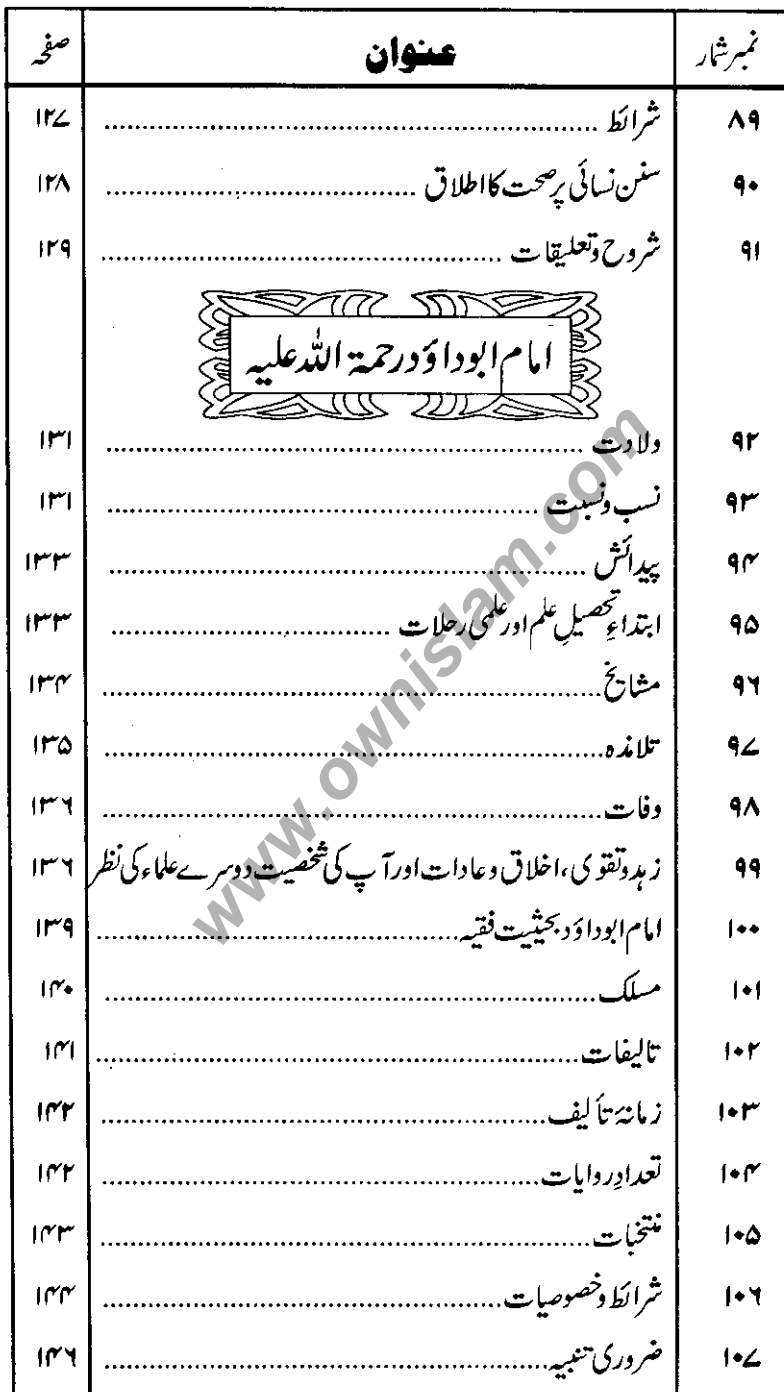 نمبر شمار عنوان صفحہ
۸۹ شرائط ................................ ۱۲۷
۹۰ سنن نسائی پر صحت کا اطلاق ................................ ۱۲۸
۹۱ شروح وتعلیقات ................................ ۱۲۹
امام ابوداؤد رحمۃ اللہ علیہ
۹۲ ولادت ................................ ۱۳۱
۹۳ نسب ونسبت ................................ ۱۳۱
۹۴ پیدائش ................................ ۱۳۳
۹۵ ابتداءِ تحصیلِ علم اور علمی رحلات ................................ ۱۳۳
۹۶ مشایخ ................................ ۱۳۴
۹۷ تلامذہ ................................ ۱۳۵
۹۸ وفات ................................ ۱۳۶
۹۹ زہد وتقوی، اخلاق وعادات اور آپ کی شخصیت دوسرے علماء کی نظر ۱۳۶
۱۰۰ امام ابوداؤد بحیثیت فقیہ ................................ ۱۳۹
۱۰۱ مسلک ................................ ۱۴۰
۱۰۲ تالیفات ................................ ۱۴۱
۱۰۳ زمانۂ تألیف ................................ ۱۴۲
۱۰۴ تعدادِ روایات ................................ ۱۴۲
۱۰۵ منتخبات ................................ ۱۴۳
۱۰۶ شرائط وخصوصیات ................................ ۱۴۴
۱۰۷ ضروری تنبیہ ................................ ۱۴۶
www.ownislam.com